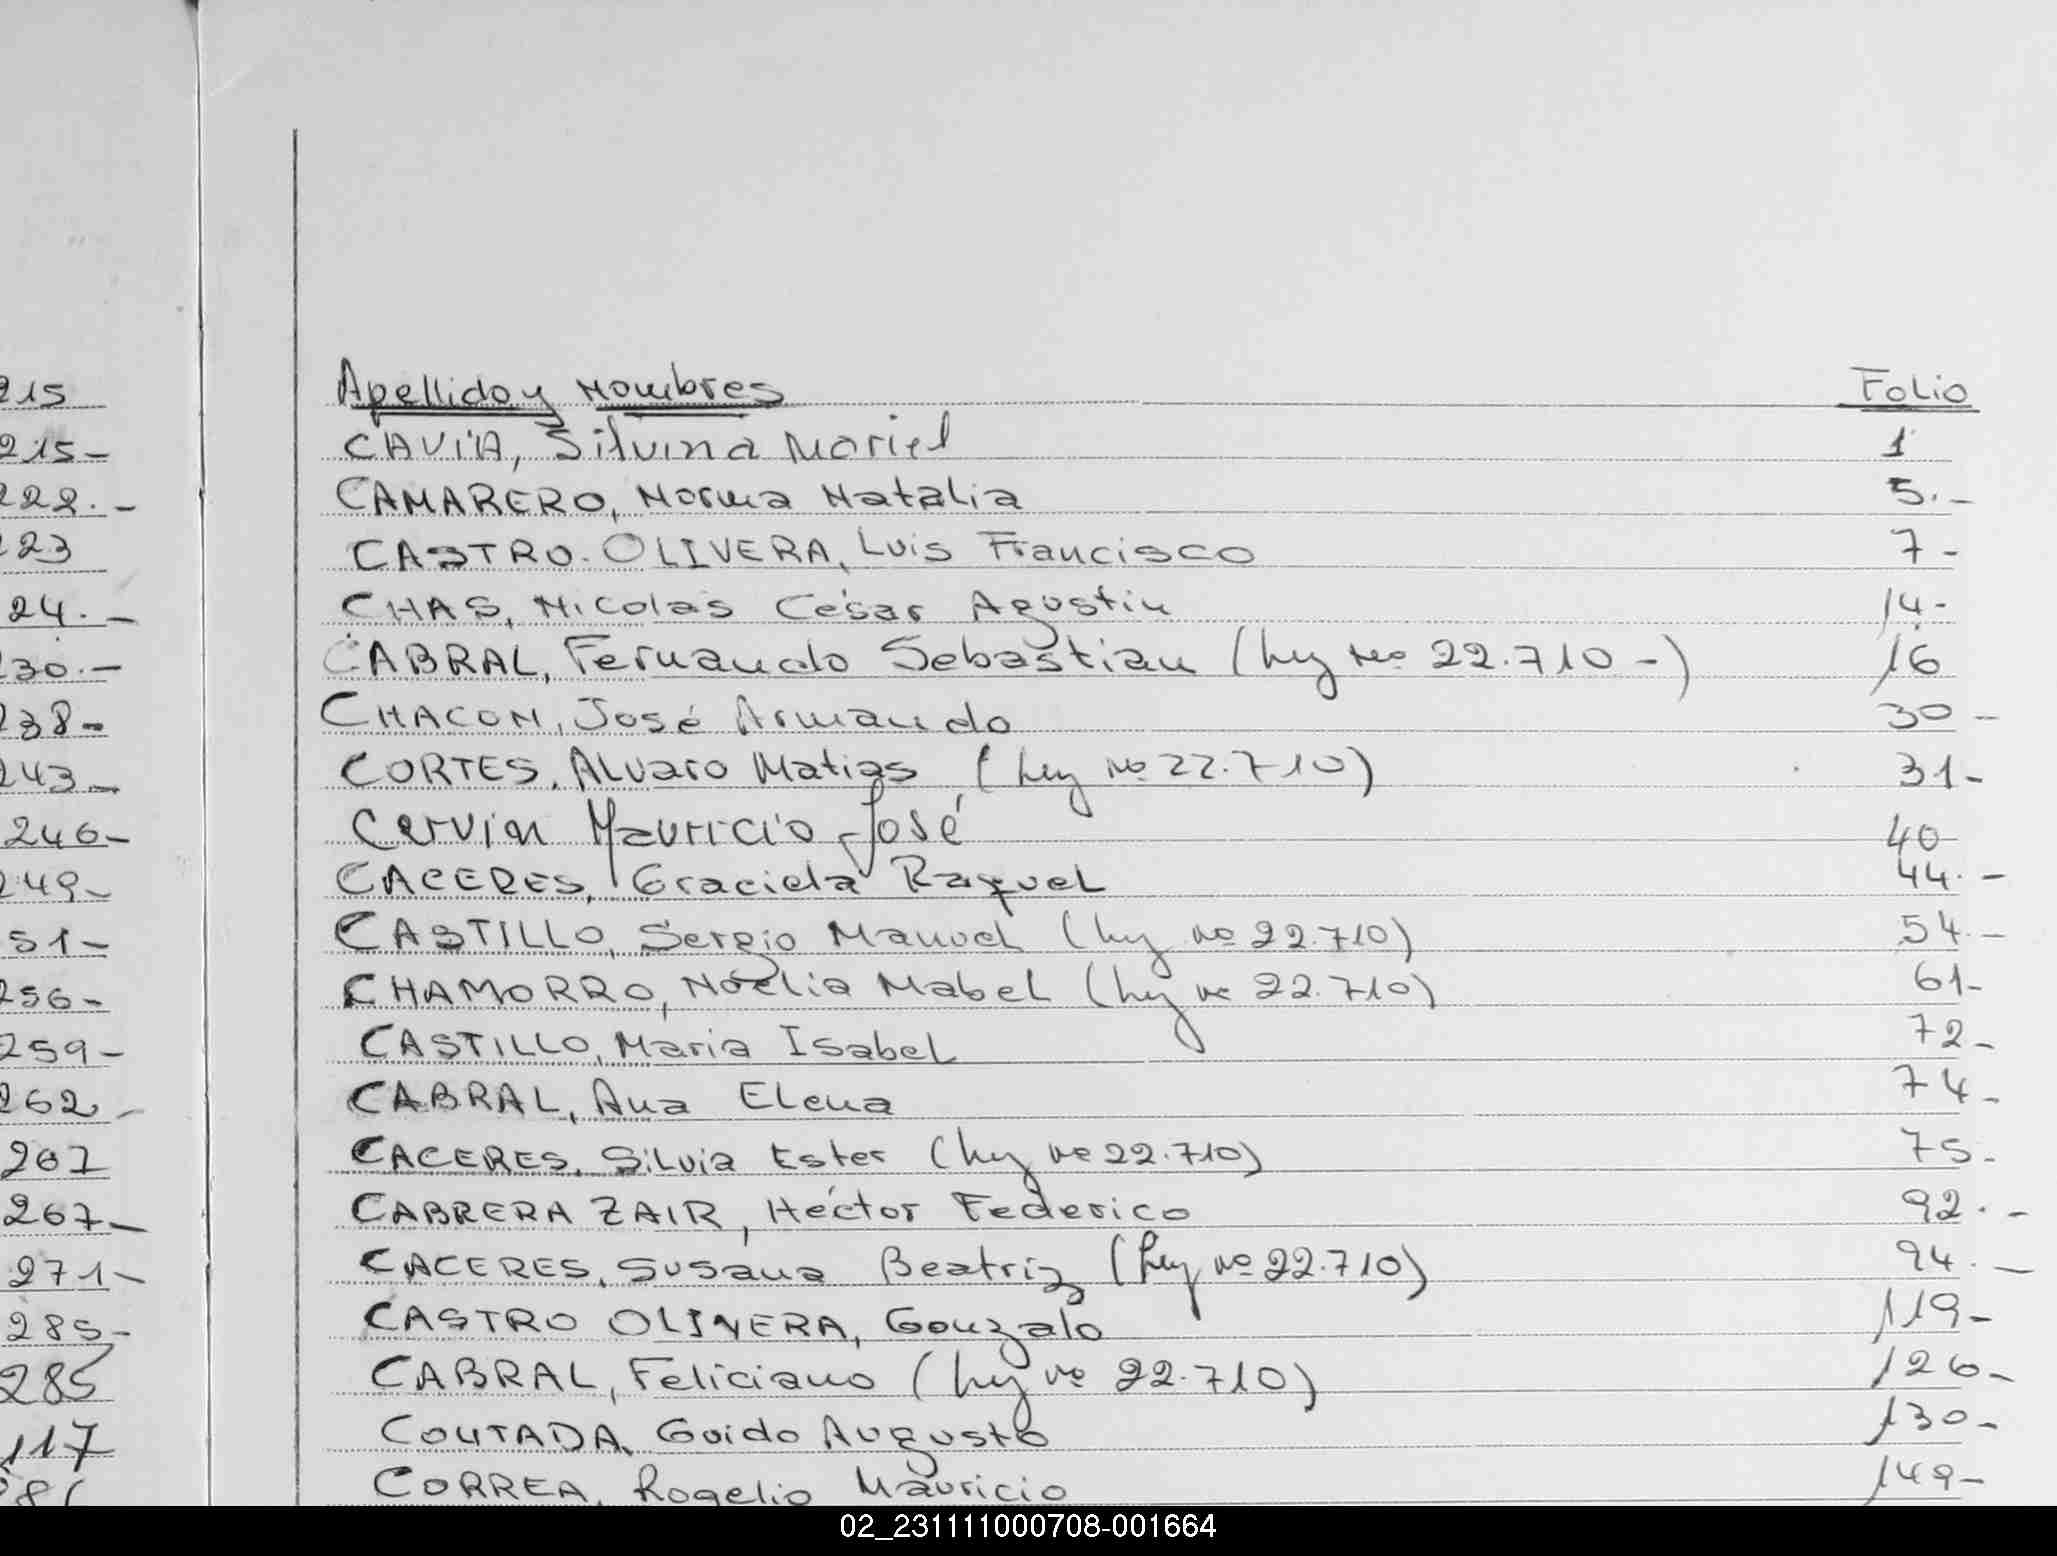 215
215-
222.-
223
24.-
230.-
238-
243-
246-
249-
51-
256-
259-
262-
267
267-
271-
285-
285
117
Apellido y Nombres Folio
CAVIA, Silvina Mariel 1
CAMARERO, Norma Natalia 5.-
CASTRO-OLIVERA, Luis Francisco 7-
CHAS, Nicolas César Agustin 14-
CABRAL, Fernando Sebastian (Ley No 22.710-) 16
CHACON, José Armando 30-
CORTES, Alvaro Matias (Ley No 22.710) 31-
Cervin Mauricio José 40
CACERES, Graciela Raquel 44.-
CASTILLO, Sergio Manuel (Ley no 22.710) 54.-
CHAMORRO, Noelia Mabel (Ley no 22.710) 61-
CASTILLO, Maria Isabel 72-
CABRAL, Ana Elena 74-
CACERES, Silvia Ester (Ley no 22.710) 75-
CABRERA ZAIR, Héctor Federico 92.-
CACERES, Susana Beatriz (Ley no 22.710) 94.-
CASTRO OLIVERA, Gonzalo 119-
CABRAL, Feliciano (Ley no 22.710) 126-
COUTADA, Guido Augusto 130-
CORREA, Rogelio Mauricio 149-
02_231111000708-001664